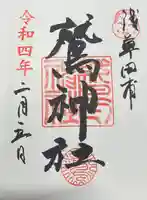 浅草田甫
鷲神社
令和四年
二月二五日